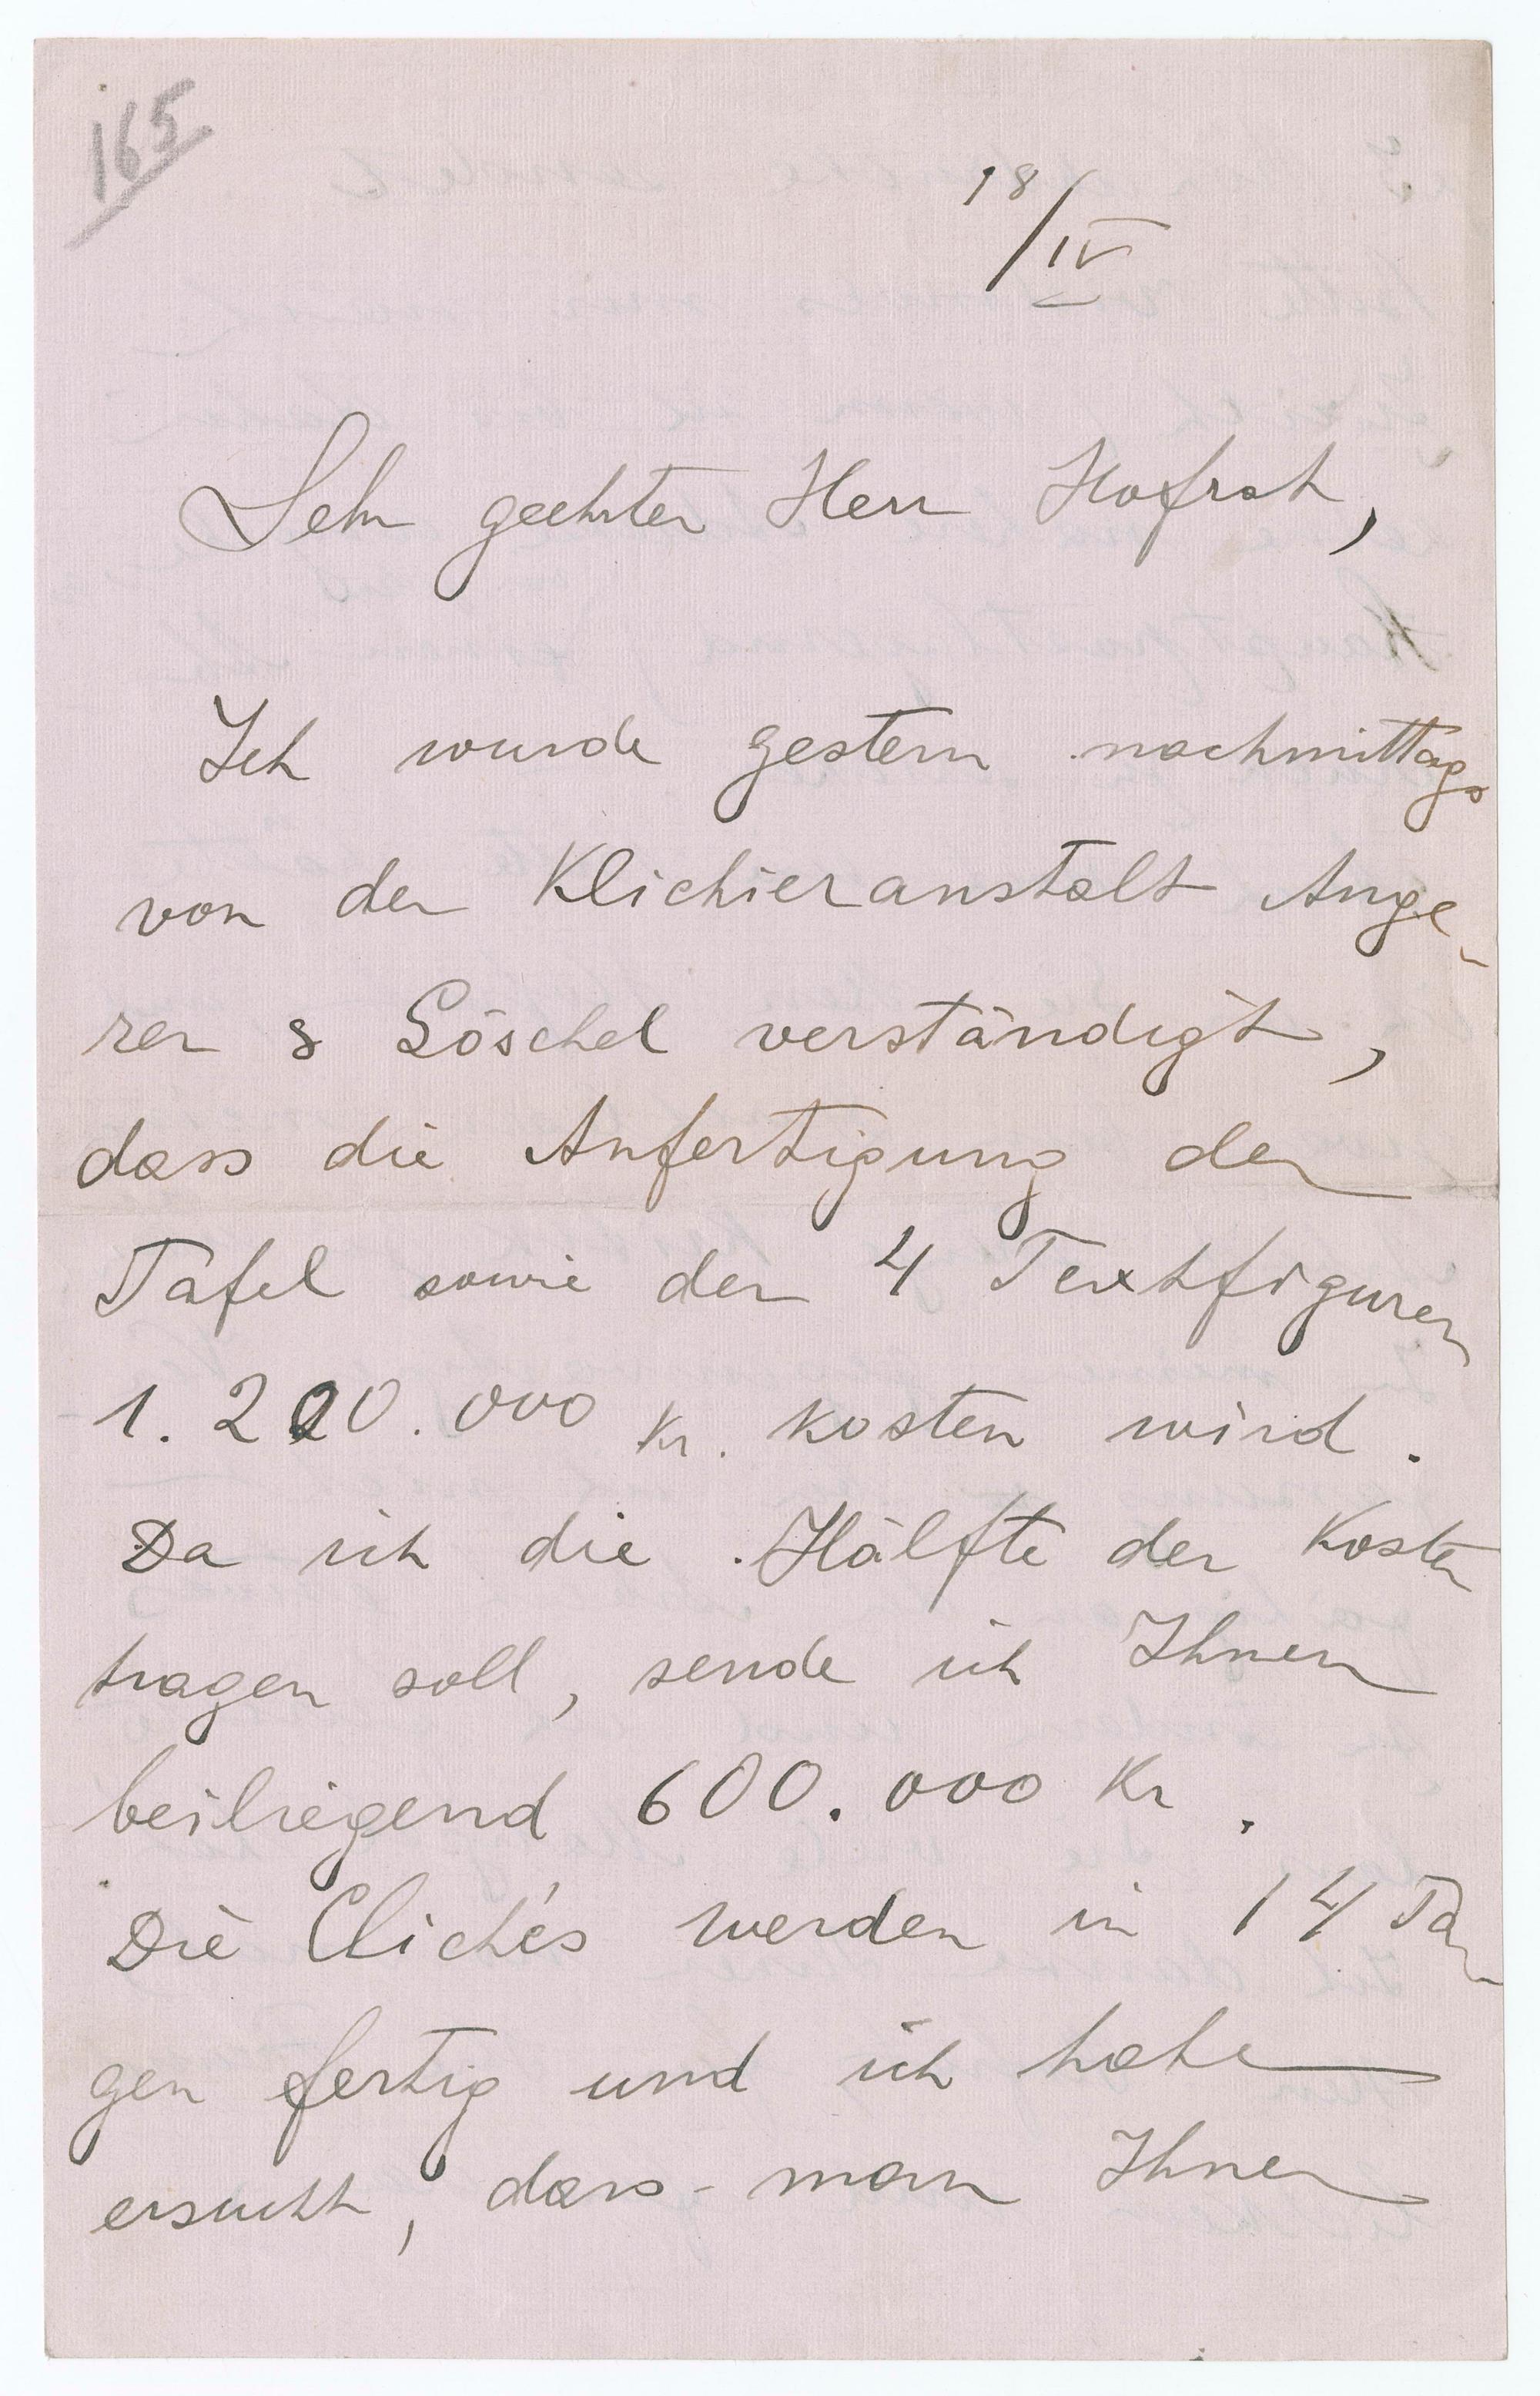 165
18/IV
Sehr geehrter Herr Hofrat,
Ich wurde gestern nachmittags
von der Klichieranstalt Ange-
rer & Göschel verständigt,
dass die Anfertigung der
Tafel sowie der 4 Textfiguren
1.200.000 Kr. kosten wird.
Da ich die Hälfte der Kosten
tragen soll, sende ich Ihnen
beiliegend 600.000 Kr.
Die Clichés werden in 14 Ta-
gen fertig und ich habe
ersucht, dass man Ihnen